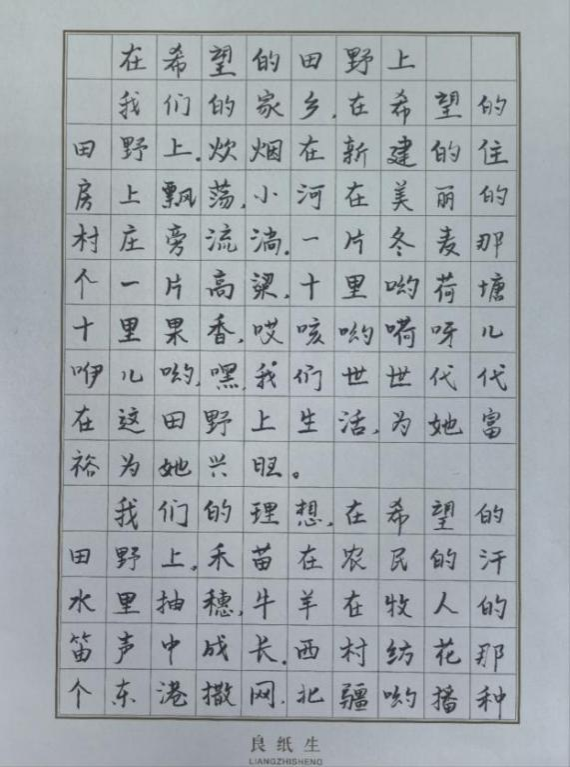 在希望的田野上
我们的家乡,在希望的
田野上.炊烟在新建的住
房上飘荡,小河在美丽的
村庄旁流淌.一片冬麦那
个一片高粱,十里哟荷塘
十里果香,哎咳哟嗬呀儿
咿儿哟,嘿,我们世世代代
在这田野上生活,为她富
裕为她兴旺。
我们的理想,在希望的
田野上,禾苗在农民的汗
水里抽穗,牛羊在牧人的
笛声中成长.西村纺花那
个东港撒网.北疆哟播种
良纸生
LIANGZHISHENG